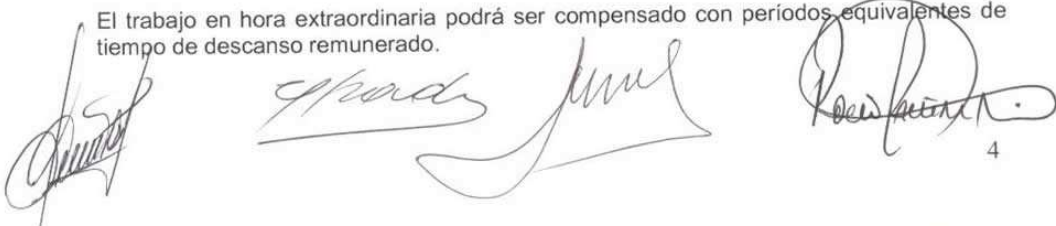 El trabajo en hora extraordinaria podrá ser compensado con períodos equivalentes de
tiempo de descanso remunerado.
4